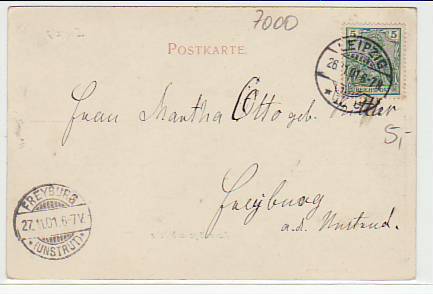 7000
POSTKARTE.
5 5
LEIPZIG
26.11.01.6-7N.
Frau Martha Otto geb.
5,-
Freyburg
a.d. Unstrut.
FREYBURG
27.11.01.6-7V.
*(UNSTRUT)*